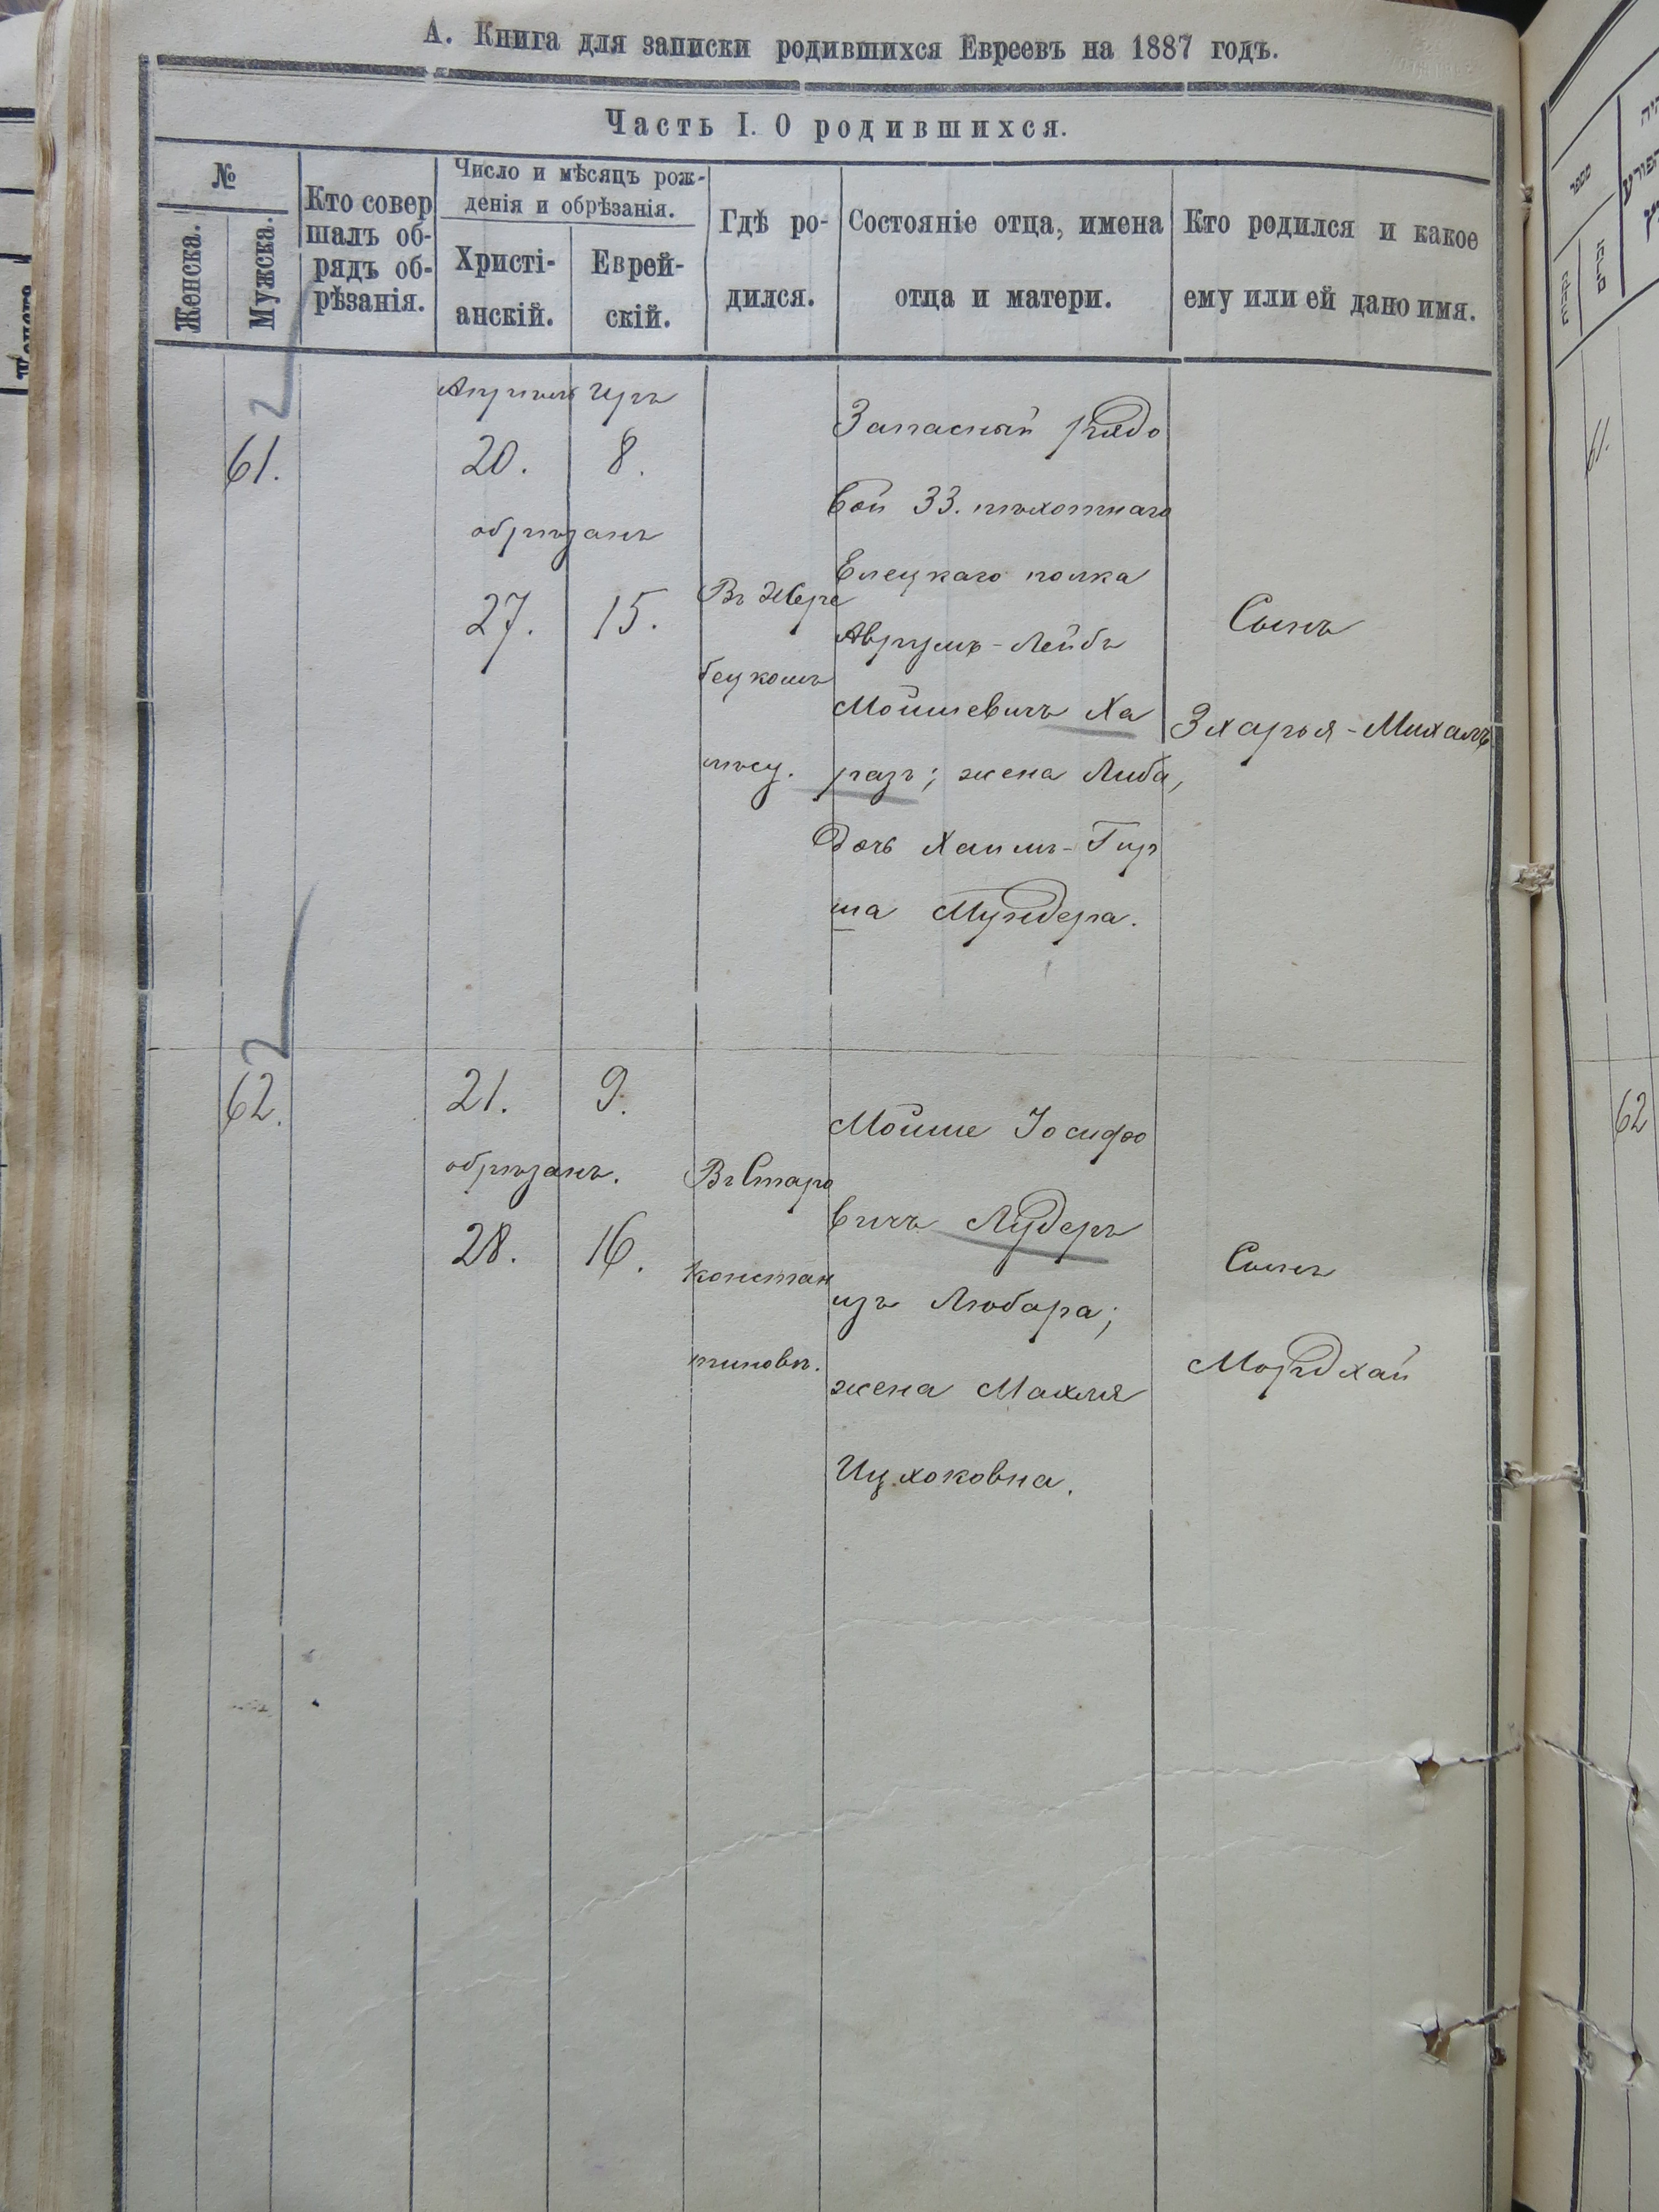 А. Книга для записки родившихся Евреевъ на 1887 годъ.
Часть I. О родившихся.
№
Женска.
Мужска.
Кто совер
шалъ об-
рядъ об-
рѣзанія.
Число и мѣсяцъ рож-
денія и обрѣзанія.
Христі-
анскій.
Еврей-
скій.
Гдѣ ро-
дился.
Состояніе отца, имена
отца и матери.
Кто родился и какое
ему или ей дано имя.
61.
Апрель Иръ
20. 8.
обрѣзанъ
27. 15.
Въ Жере
бецкомъ
лѣсу.
Запасный рядо
вой 33. пѣхотнаго
Елецкаго полка
Аврумъ-Лейбъ
Мойшевичъ Ха
разъ; жена Либа,
дочь Хаимъ-Гир
ша Мундера.
Сынъ
Зхарья-Михалъ
62.
21. 9.
обрѣзанъ.
28. 16.
Въ Старо
констан
тиновѣ.
Мойше Іосифо
вичъ Лудеръ
изъ Любара;
жена Махля
Ицхоковна.
Сынъ
Мордхай
61.
62